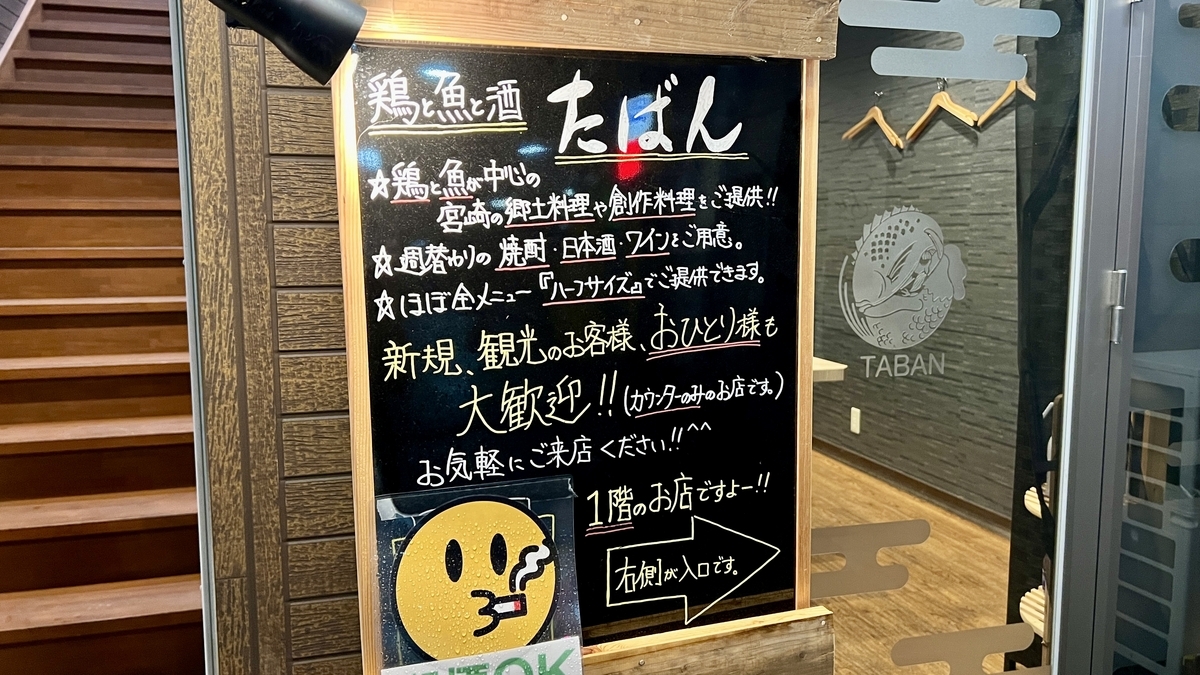 鶏と魚と酒 たばん
☆鶏と魚が中心の
宮崎の郷土料理や創作料理をご提供!!
☆週替わりの焼酎・日本酒・ワインをご用意。
☆ほぼ全メニュー『ハーフサイズ』でご提供できます。
新規、観光のお客様、おひとり様も
大歓迎!!(カウンターのみのお店です。)
お気軽にご来店ください!!^^
1階のお店ですよー!!
右側が入口です。
OK
TABAN